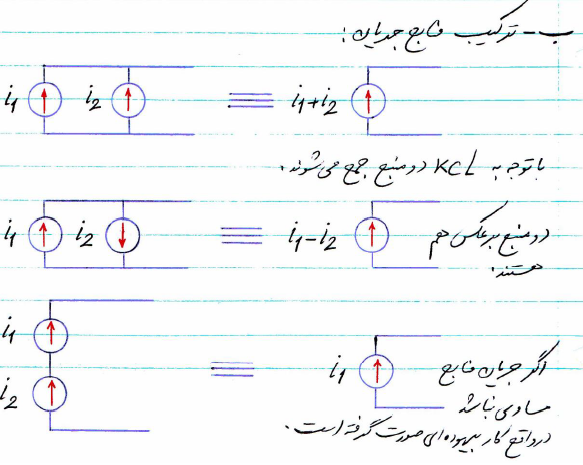 ب- ترکیب منابع جریان:
i1 i2 ≡ i1+i2
با توجه به KCL دو منبع جمع می شوند.
i1 i2 ≡ i1-i2 دو منبع برعکس هم
هستند.
i1
≡ i1 اگر جریان منابع
i2 مساوی نباشد
در واقع کار بیهوده ای صورت گرفته است.